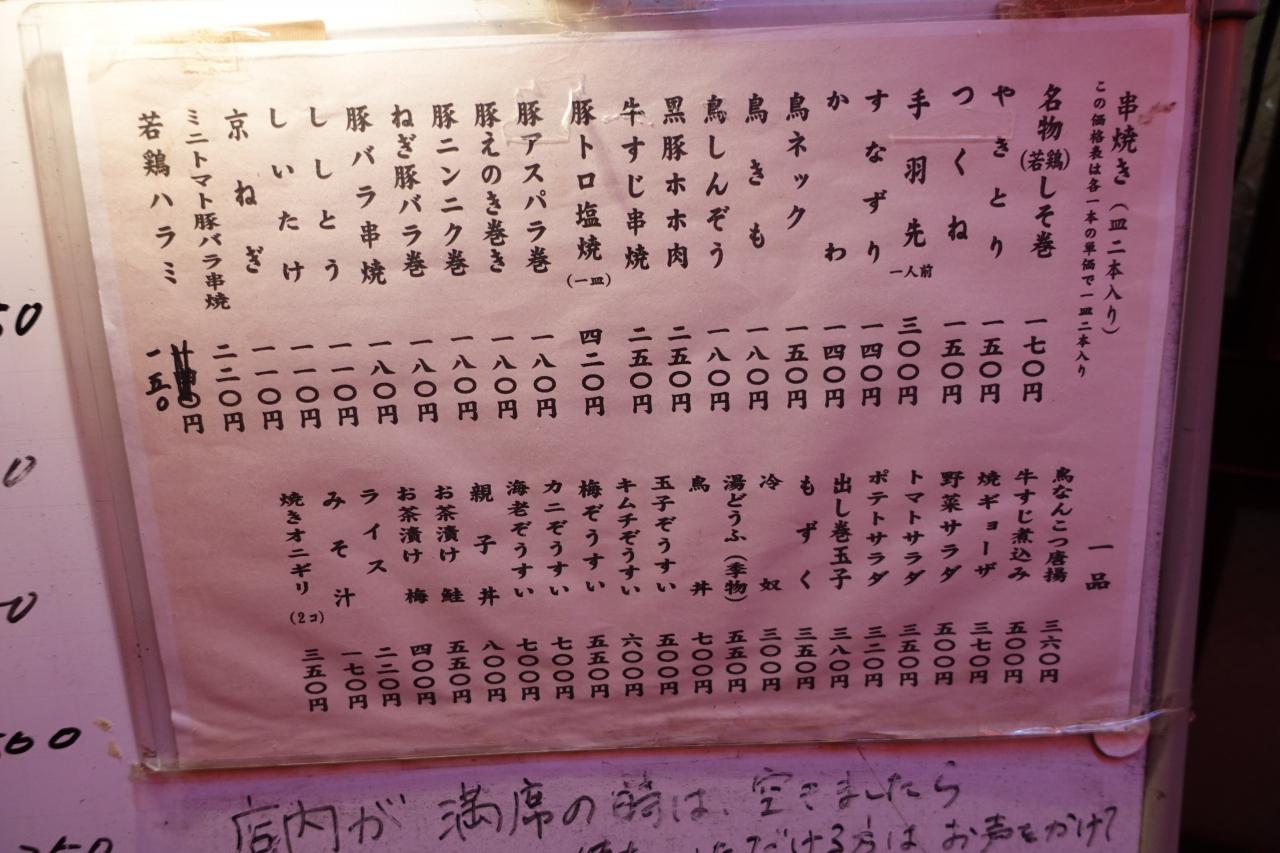 串焼き（一皿二本入り）
この価格表は各一本の単価で一皿二本入り
名物(若鶏)しそ巻 一七〇円
やきとり 一五〇円
つくね 一五〇円
手羽先 一人前 三〇〇円
すなずり 一四〇円
かわ 一四〇円
鳥ネック 一五〇円
鳥きも 一八〇円
鳥しんぞう 一八〇円
黒豚ホホ肉 二五〇円
牛すじ串焼 二五〇円
豚トロ塩焼(一皿) 四二〇円
豚アスパラ巻 一八〇円
豚えのき巻き 一八〇円
豚ニンニク巻 一八〇円
ねぎ豚バラ巻 一八〇円
豚バラ串焼 一八〇円
ししとう 一一〇円
しいたけ 一一〇円
京ねぎ 一一〇円
ミニトマト豚バラ串焼 二二〇円
若鶏ハラミ 〇円 一五〇
一品
鳥なんこつ唐揚 三六〇円
牛すじ煮込み 五〇〇円
焼ギョーザ 三七〇円
野菜サラダ 五〇〇円
トマトサラダ 三五〇円
ポテトサラダ 三二〇円
出し巻玉子 三八〇円
もずく 三五〇円
冷奴 三〇〇円
湯どうふ(季物) 五五〇円
鳥丼 七〇〇円
玉子ぞうすい 五〇〇円
キムチぞうすい 六〇〇円
梅ぞうすい 五五〇円
カニぞうすい 七〇〇円
海老ぞうすい 七〇〇円
親子丼 八〇〇円
お茶漬け 鮭 五五〇円
お茶漬け 梅 四〇〇円
ライス 二二〇円
みそ汁 一七〇円
焼きオニギリ(2コ) 三五〇円
店内が満席の時は、空きましたら
だける方はお声をかけて